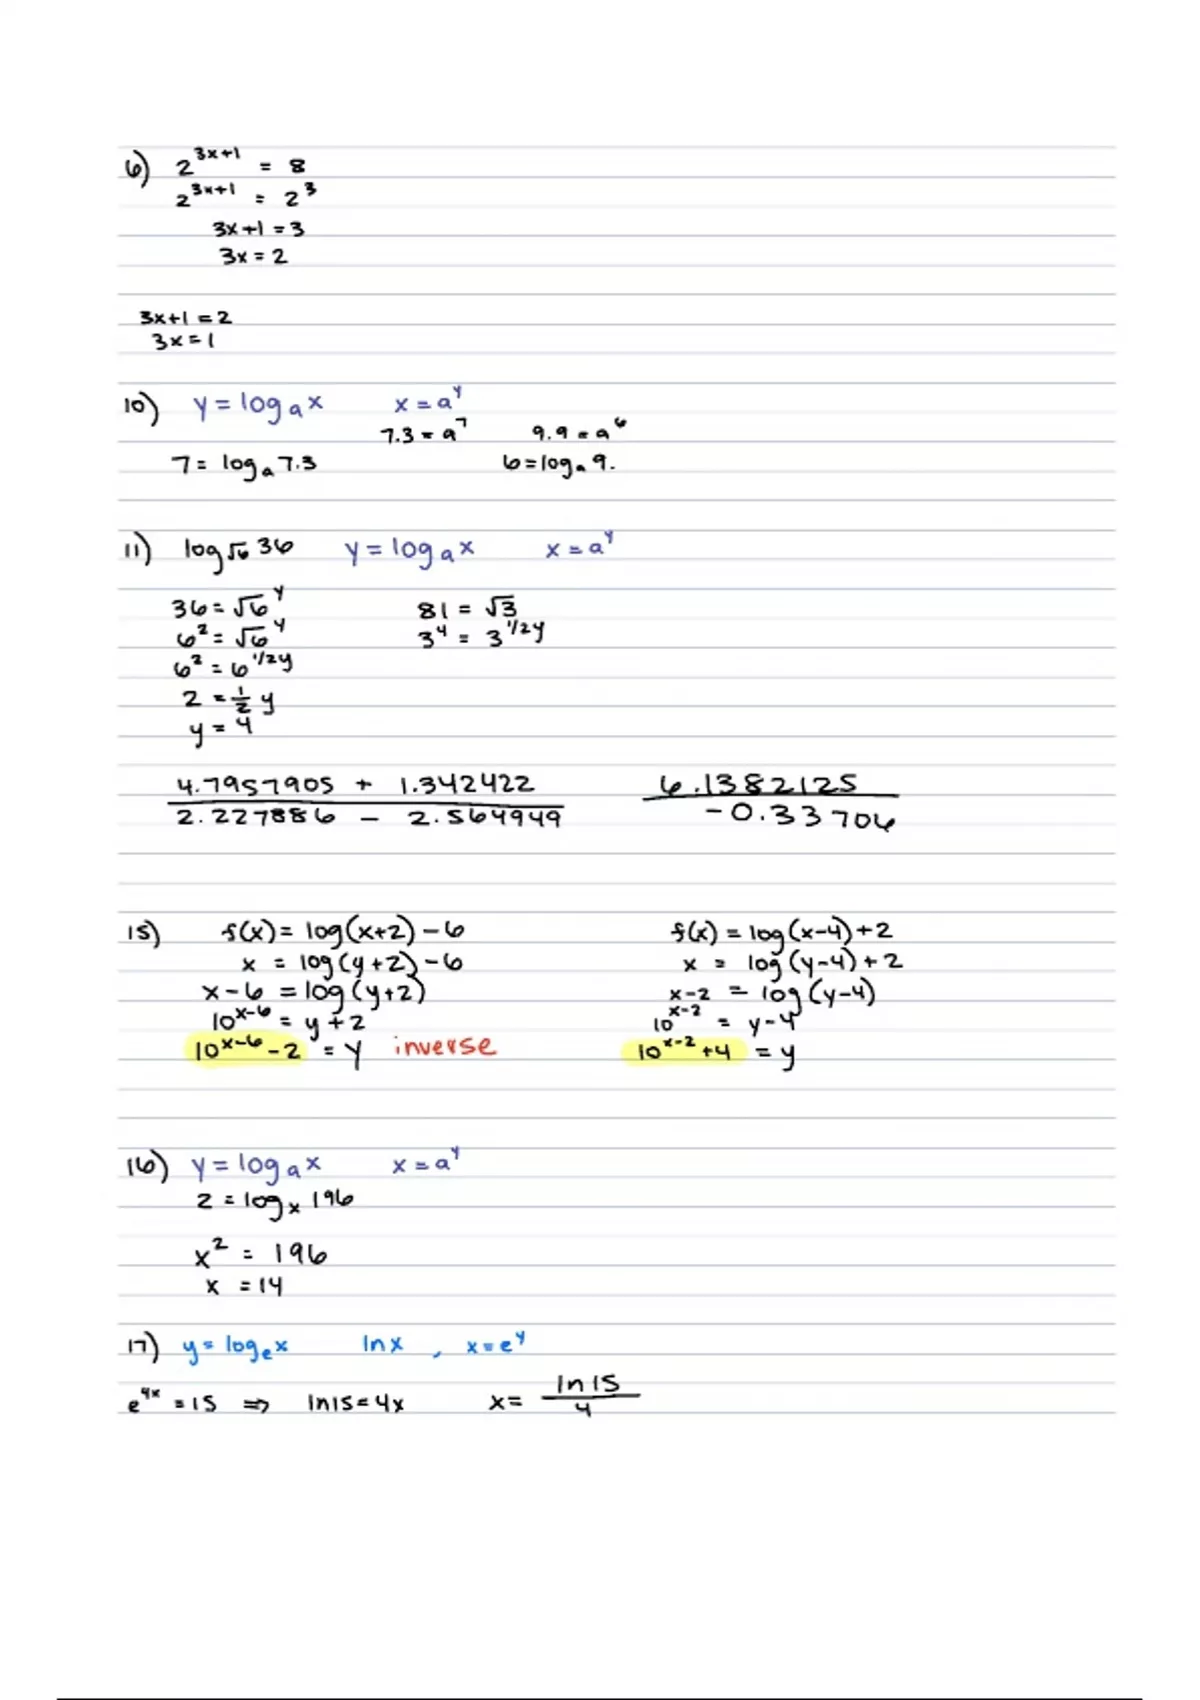 6) 2^{3x+1} = 8
2^{3x+1} = 2^3
3x+1 = 3
3x = 2
3x+1 = 2
3x = 1
10) y = log_a x x = a^y
7.3 = a^7 9.9 = a^6
7 = log_a 7.3 6 = log_a 9.
11) log_{√6} 36 y = log_a x x = a^y
36 = √6^y 81 = √3
6^2 = √6^y 3^4 = 3^{1/2y}
6^2 = 6^{1/2y}
2 = 1/2 y
y = 4
4.7957905 + 1.342422 6.1382125
2.227886 - 2.564949 -0.33706
15) f(x) = log(x+2) - 6 f(x) = log(x-4) + 2
x = log(y+2) - 6 x = log(y-4) + 2
x - 6 = log(y+2) x-2 = log(y-4)
10^{x-6} = y + 2 10^{x-2} = y - 4
10^{x-6} - 2 = y inverse 10^{x-2} + 4 = y
16) y = log_a x x = a^y
2 = log_x 196
x^2 = 196
x = 14
17) y = log_e x ln x , x = e^y
e^{4x} = 15 ⇒ ln15 = 4x x = ln 15 / 4